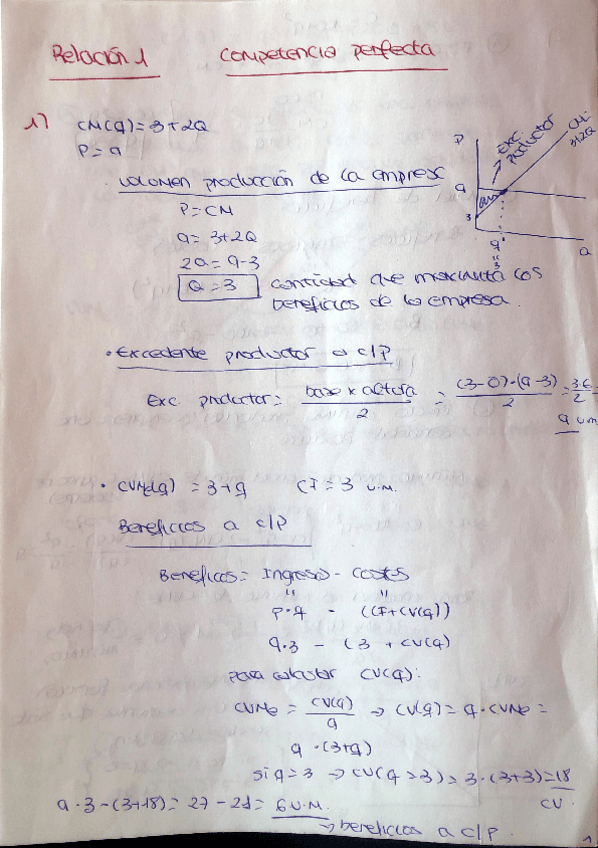 Relación 1 Competencia perfecta
1) CM(q)=3+2Q
P=9
Volumen producción de la empresa
P=CM
9=3+2Q
2Q=9-3
Q=3 cantidad que maximiza los
beneficios de la empresa.
P
9
3
q* = 3
Q
Exc. productor
CM=
3+2Q
• Excedente productor a c/P
Exc. productor = base x altura / 2 = (3-0)·(9-3) / 2 = 3·6 / 2 =
9 u.m.
• CVMe(q) = 3+q CF = 3 u.m.
Beneficios a c/P
Beneficios = Ingreso - Costes
" "
P·q - (CF+CV(q))
9·3 - (3 + CV(q)
para calcular CV(q):
CVMe = CV(q) / q → CV(q) = q·CVMe =
q·(3+q)
si q=3 → CV(q=3) = 3·(3+3) = 18
CV
9·3-(3+18) = 27-21 = 6 U.M.
→ beneficios a c/P.
1